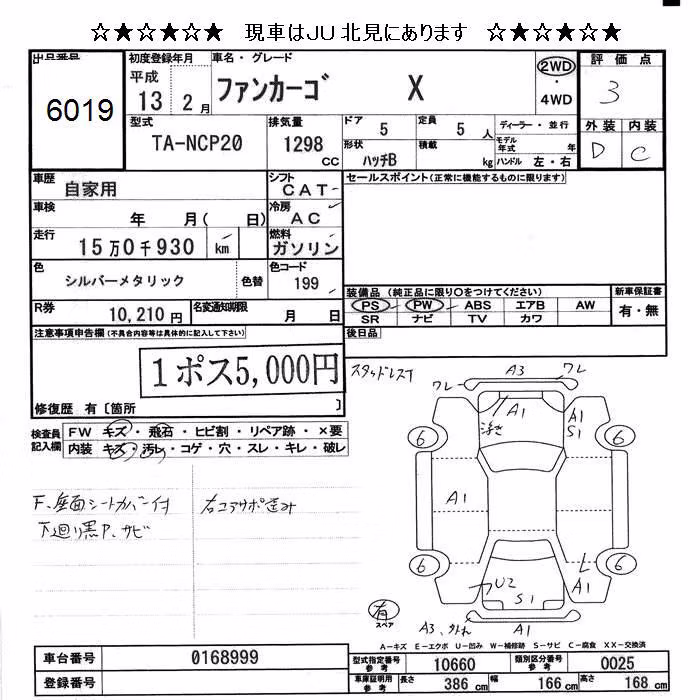 ☆★☆★☆★ 現車はJU北見にあります ☆★☆★☆★
出品番号
6019
初度登録年月
平成
13 2 月
車名・グレード
ファンカーゴ X
2WD
・
4WD
評価点
3
外装 内装
D C
型式
TA-NCP20
排気量
1298
CC
ドア
5
定員
5 人
形状
ハッチB
積載
kg
ディーラー・並行
モデル年式 年
ハンドル 左・右
車歴
自家用
シフト
CAT
セールスポイント(正常に機能するものに限ります)
車検
年 月( 日)
冷房
AC
走行
15万0千930 km
燃料
ガソリン
色
シルバーメタリック
色替
色コード
199
R券
10,210円
名変通知期限
月 日
装備品 (純正品に限り○をつけてください)
PS PW ABS エアB AW
SR ナビ TV カワ
新車保証書
有・無
後日品
注意事項申告欄(不具合内容等は具体的に記入して下さい)
1ポス5,000円
修復歴 有〔箇所 〕
検査員記入欄
FW キズ・飛石・ヒビ割・リペア跡・×要
内装 キズ・汚レ・コゲ・穴・スレ・キレ・破レ
F、座面シートカバー付
下廻り黒P、サビ
右コアサポ歪み
スタッドレス
ワレ A3 ワレ
A1
浮き
A1
S1
6 6
A1
6 6
U2
S1
A1
有
スペア
A3、外れ A1
A-キズ E-エクボ U-凹み W-補修跡 S-サビ C-腐食 XX-交換済
車台番号 0168999
登録番号
型式指定番号
参考
10660
類別区分番号
参考
0025
車庫証明用
参考
長さ 386 cm
幅 166 cm
高さ 168 cm